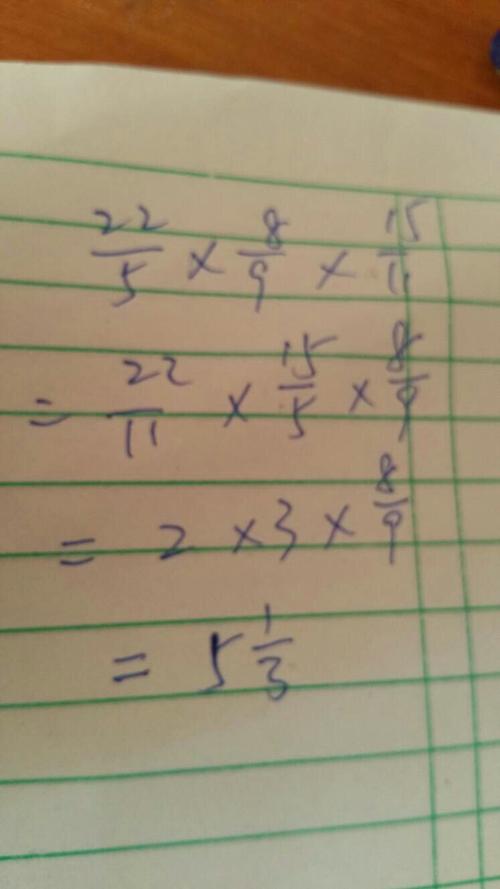 22/5 × 8/9 × 15/11
= 22/11 × 15/5 × 8/9
= 2 × 3 × 8/9
= 5 1/3